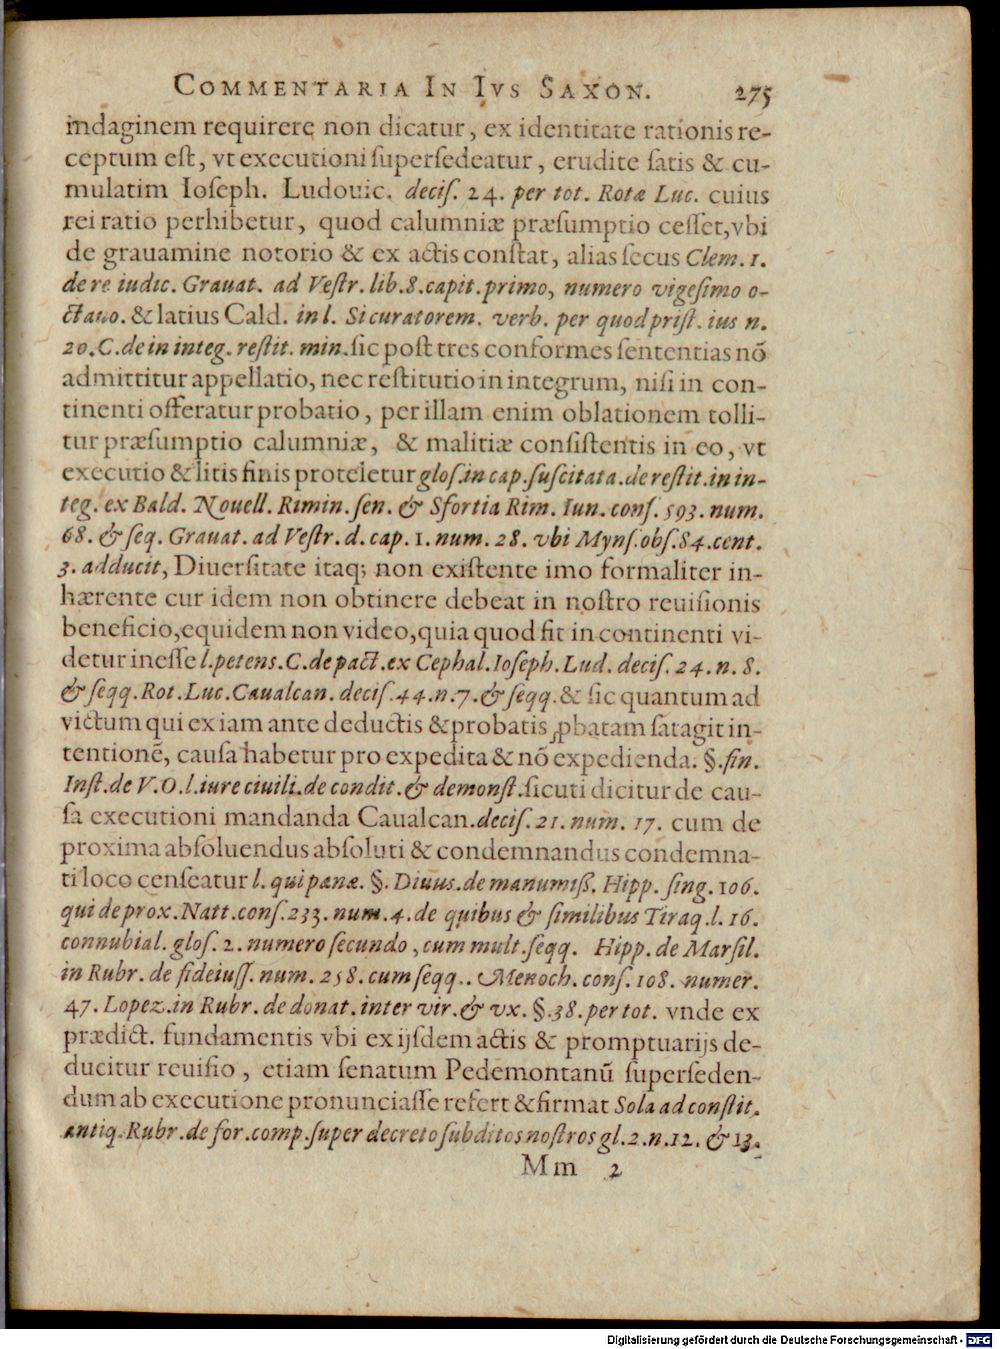 COMMENTARIA IN IVS SAXON. 275
indaginem requirere non dicatur, ex identitate rationis re-
ceptum eſt, vt executioni ſuperſedeatur, erudite ſatis & cu-
mulatim Ioſeph. Ludouic. deciſ. 24. per tot. Rotæ Luc. cuius
rei ratio perhibetur, quod calumniæ præſumptio ceſſet, vbi
de grauamine notorio & ex actis conſtat, alias ſecus Clem. 1.
de re iudic. Grauat. ad Veſtr. lib. 8. capit. primo, numero vigeſimo o-
ctauo. & latius Cald. in l. Si curatorem. verb. per quod priſt. ius n.
20. C. de in integ. reſtit. min. ſic poſt tres conformes ſententias nō
admittitur appellatio, nec reſtitutio in integrum, niſi in con-
tinenti offeratur probatio, per illam enim oblationem tolli-
tur præſumptio calumniæ, & malitiæ conſiſtentis in eo, vt
executio & litis finis proteletur gloſ. in cap. ſuſcitata. de reſtit. in in-
teg. ex Bald. Nouell. Rimin. ſen. & Sfortia Rim. Iun. conſ. 593. num.
68. & ſeq. Grauat. ad Veſtr. d. cap. 1. num. 28. vbi Mynſ. obſ. 84. cent.
3. adducit, Diuerſitate itaq; non exiſtente imo formaliter in-
hærente cur idem non obtinere debeat in noſtro reuiſionis
beneficio, equidem non video, quia quod fit in continenti vi-
detur ineſſe l. petens. C. de pact. ex Cephal. Ioſeph. Lud. deciſ. 24. n. 8.
& ſeqq. Rot. Luc. Caualcan. deciſ. 44. n. 7. & ſeqq. & ſic quantum ad
victum qui ex iam ante deductis & probatis ꝓbatam ſatagit in-
tentionē, cauſa habetur pro expedita & nō expedienda. §. fin.
Inſt. de V. O. l. iure ciuili. de condit. & demonſt. ſicuti dicitur de cau-
ſa executioni mandanda Caualcan. deciſ. 21. num. 17. cum de
proxima abſoluendus abſoluti & condemnandus condemna-
ti loco cenſeatur l. qui pœnæ. §. Diuus. de manumiſſ. Hipp. ſing. 106.
qui de prox. Natt. conſ. 233. num. 4. de quibus & ſimilibus Tiraq. l. 16.
connubial. gloſ. 2. numero ſecundo, cum mult. ſeqq. Hipp. de Marſil.
in Rubr. de fideiuſſ. num. 258. cum ſeqq.. Menoch. conſ. 108. numer.
47. Lopez. in Rubr. de donat. inter vir. & vx. §. 38. per tot. vnde ex
prædict. fundamentis vbi ex ijſdem actis & promptuarijs de-
ducitur reuiſio, etiam ſenatum Pedemontanū ſuperſeden-
dum ab executione pronunciaſſe refert & firmat Sola ad conſtit.
antiq. Rubr. de for. comp. ſuper decreto ſubditos noſtros gl. 2. n. 12. & 13.
Mm 2
Digitalisierung gefördert durch die Deutsche Forschungsgemeinschaft - DFG